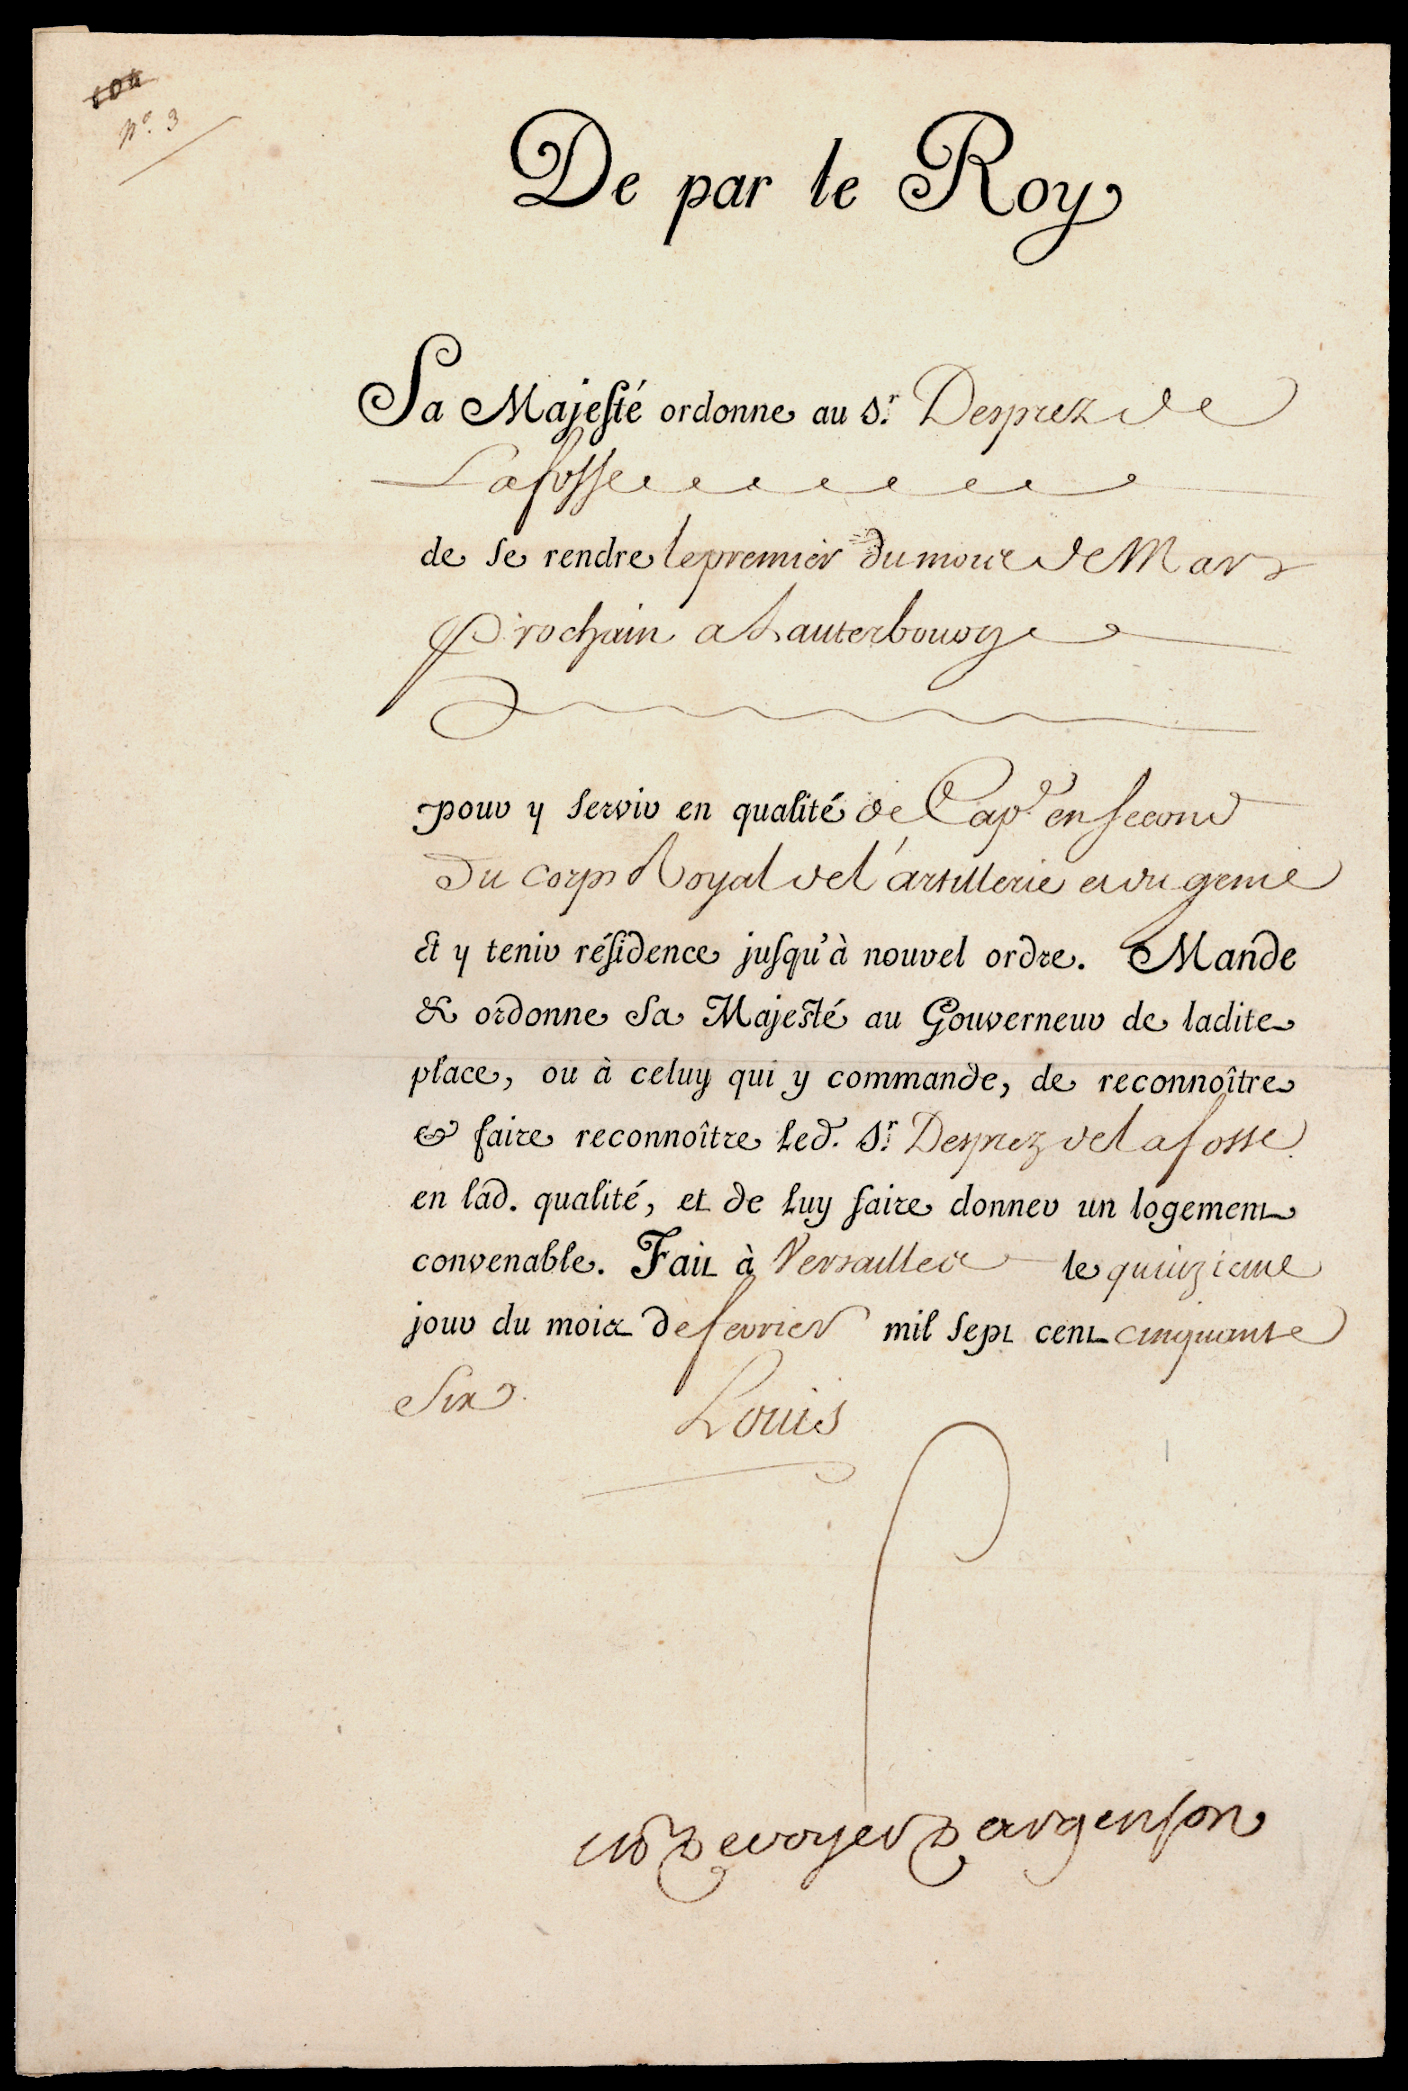 104
n.º 3
De par le Roy
Sa Majesté ordonne au S.r Desprez de
Lafosse
de se rendre le premier du mois de Mars
Prochain a Lauterbourg
pour y servir en qualité de Cap.e en second
Du corps Royal de l'artillerie et du genie
Et y tenir résidence jusqu'à nouvel ordre. Mande
& ordonne Sa Majesté au Gouverneur de ladite
place, ou à celuy qui y commande, de reconnoître
& faire reconnoître led. S.r Desprez de Lafosse
en lad. qualité, et de luy faire donner un logement
convenable. Fait à Versailles le quinzieme
jour du mois de fevrier mil sept cent cinquante
Six.
Louis
De voyer D'argenson